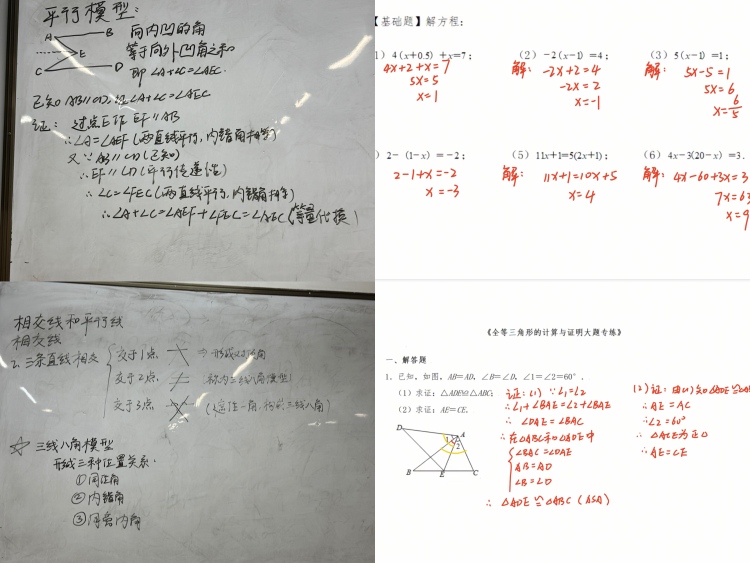 平行模型:
A B
E
C D
向内凹的角
等于向外凹角之和
即∠A+∠C=∠AEC.
已知AB∥CD,证∠A+∠C=∠AEC
证: 过点E作EF∥AB
∴∠A=∠AEF(两直线平行,内错角相等)
又∵AB∥CD(已知)
∴EF∥CD(平行传递性)
∴∠C=∠FEC(两直线平行,内错角相等)
∴∠A+∠C=∠AEF+∠FEC=∠AEC(等量代换)
【基础题】解方程:
1) 4(x+0.5)+x=7;
4x+2+x=7
5x=5
x=1
(2) -2(x-1)=4;
解: -2x+2=4
-2x=2
x=-1
(3) 5(x-1)=1;
解: 5x-5=1
5x=6
x=6/5
) 2-(1-x)=-2;
2-1+x=-2
x=-3
(5) 11x+1=5(2x+1);
解: 11x+1=10x+5
x=4
(6) 4x-3(20-x)=3.
解: 4x-60+3x=3
7x=63
x=9
相交线和平行线
相交线
2.三条直线相交
交于1点
交于2点
交于3点
☆ 三线八角模型
形成三种位置关系:
①同位角
②内错角
③同旁内角
《全等三角形的计算与证明大题专练》
一、解答题
1.已知,如图,AB=AD,∠B=∠D,∠1=∠2=60°.
(1)求证:△ADE≌△ABC;
(2)求证:AE=CE.
D A 1 2
B E C
证:(1) ∵∠1=∠2
∴∠1+∠BAE=∠2+∠BAE
∴ ∠DAE=∠BAC
∴在△ABC和△ADE中
∠BAC=∠DAE
AB=AD
∠B=∠D
∴ △ADE≌△ABC(ASA)
(2)证:由(1)知△ADE≌△AB
∴AE=AC
∵∠2=60°
∴△ACE为正△
∴AE=CE